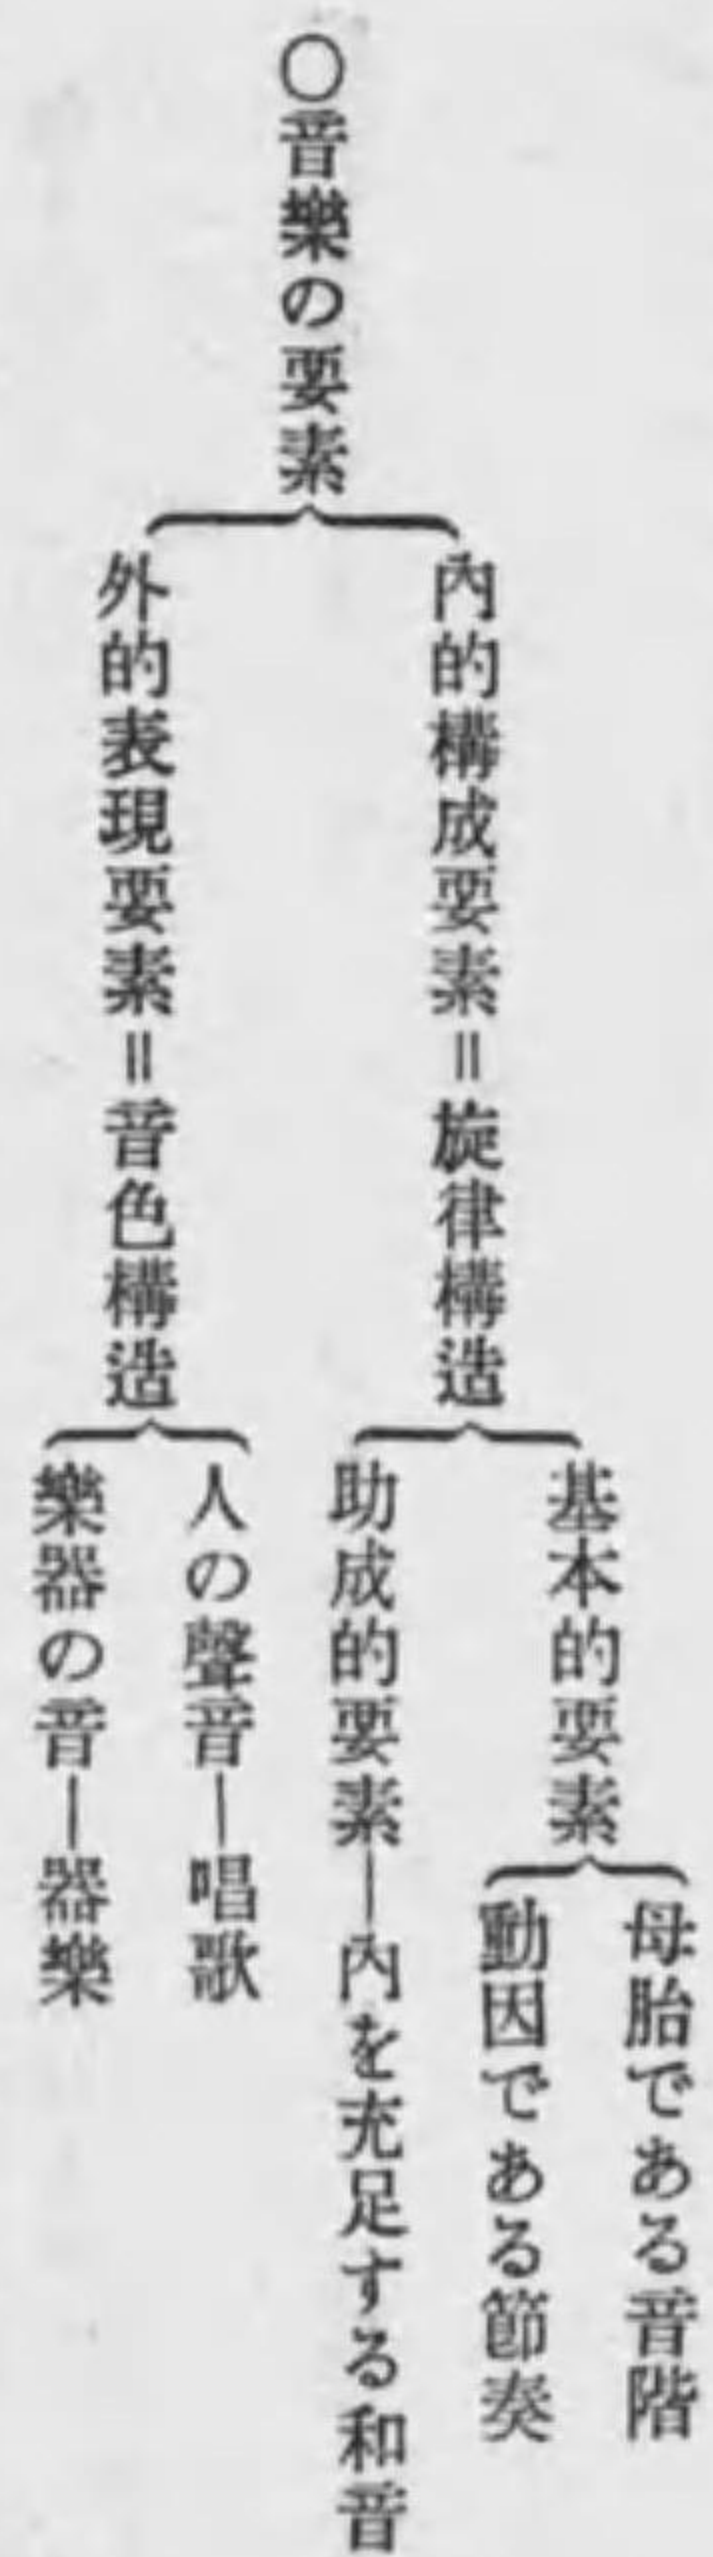 〇音樂の要素
內的構成要素＝旋律構造
基本的要素
母胎である音階
動因である節奏
助成的要素―內を充足する和音
外的表現要素＝音色構造
人の聲音―唱歌
樂器の音―器樂